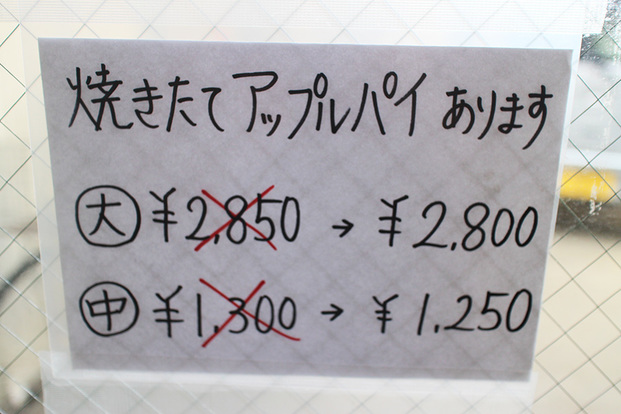 焼きたてアップルパイ あります
㊤大 ¥2,850 → ¥2,800
㊥ ¥1,300 → ¥1,250